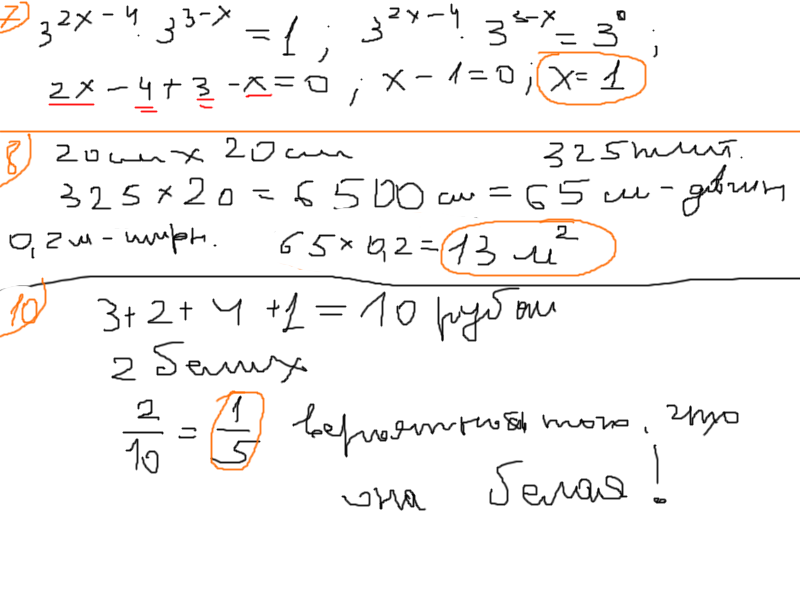 7) 3^{2x-4} · 3^{3-x} = 1 ; 3^{2x-4} · 3^{3-x} = 3^0 ;
2x - 4 + 3 - x = 0 ; x - 1 = 0 ; x = 1
8) 20см x 20см 325плит.
325 × 20 = 6500 см = 65 м - длин
0,2м - шир. 65 × 0,2 = 13 м²
10) 3 + 2 + 4 + 1 = 10 рубаш
2 белих
2/10 = 1/5 вероятность того, что
она белая!